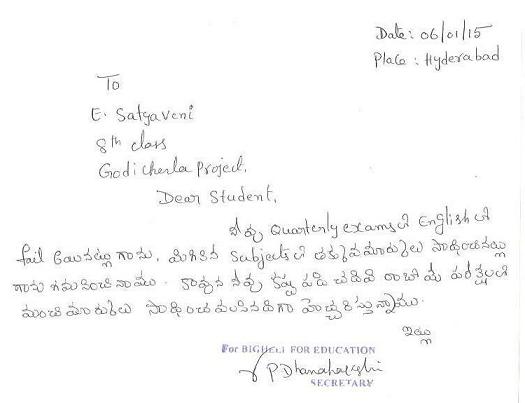 Date: 06/01/15
Place: Hyderabad
To
E. Satyaveni
8th class
Godicherla Project.
Dear Student,
నీవు Quarterly exams లో English లో
fail అయినట్లు గాను, మిగిలిన Subjects లో తక్కువ మార్కులు సాధించినట్లు
గాను గమనించినాము. కావున నీవు కష్ట పడి చదివి రాబోయే పరీక్షలలో
మంచి మార్కులు సాధించ వలసినదిగా హెచ్చరిస్తున్నాము.
ఇట్లు
For BIGHELP FOR EDUCATION
P Dhanalakshmi
SECRETARY